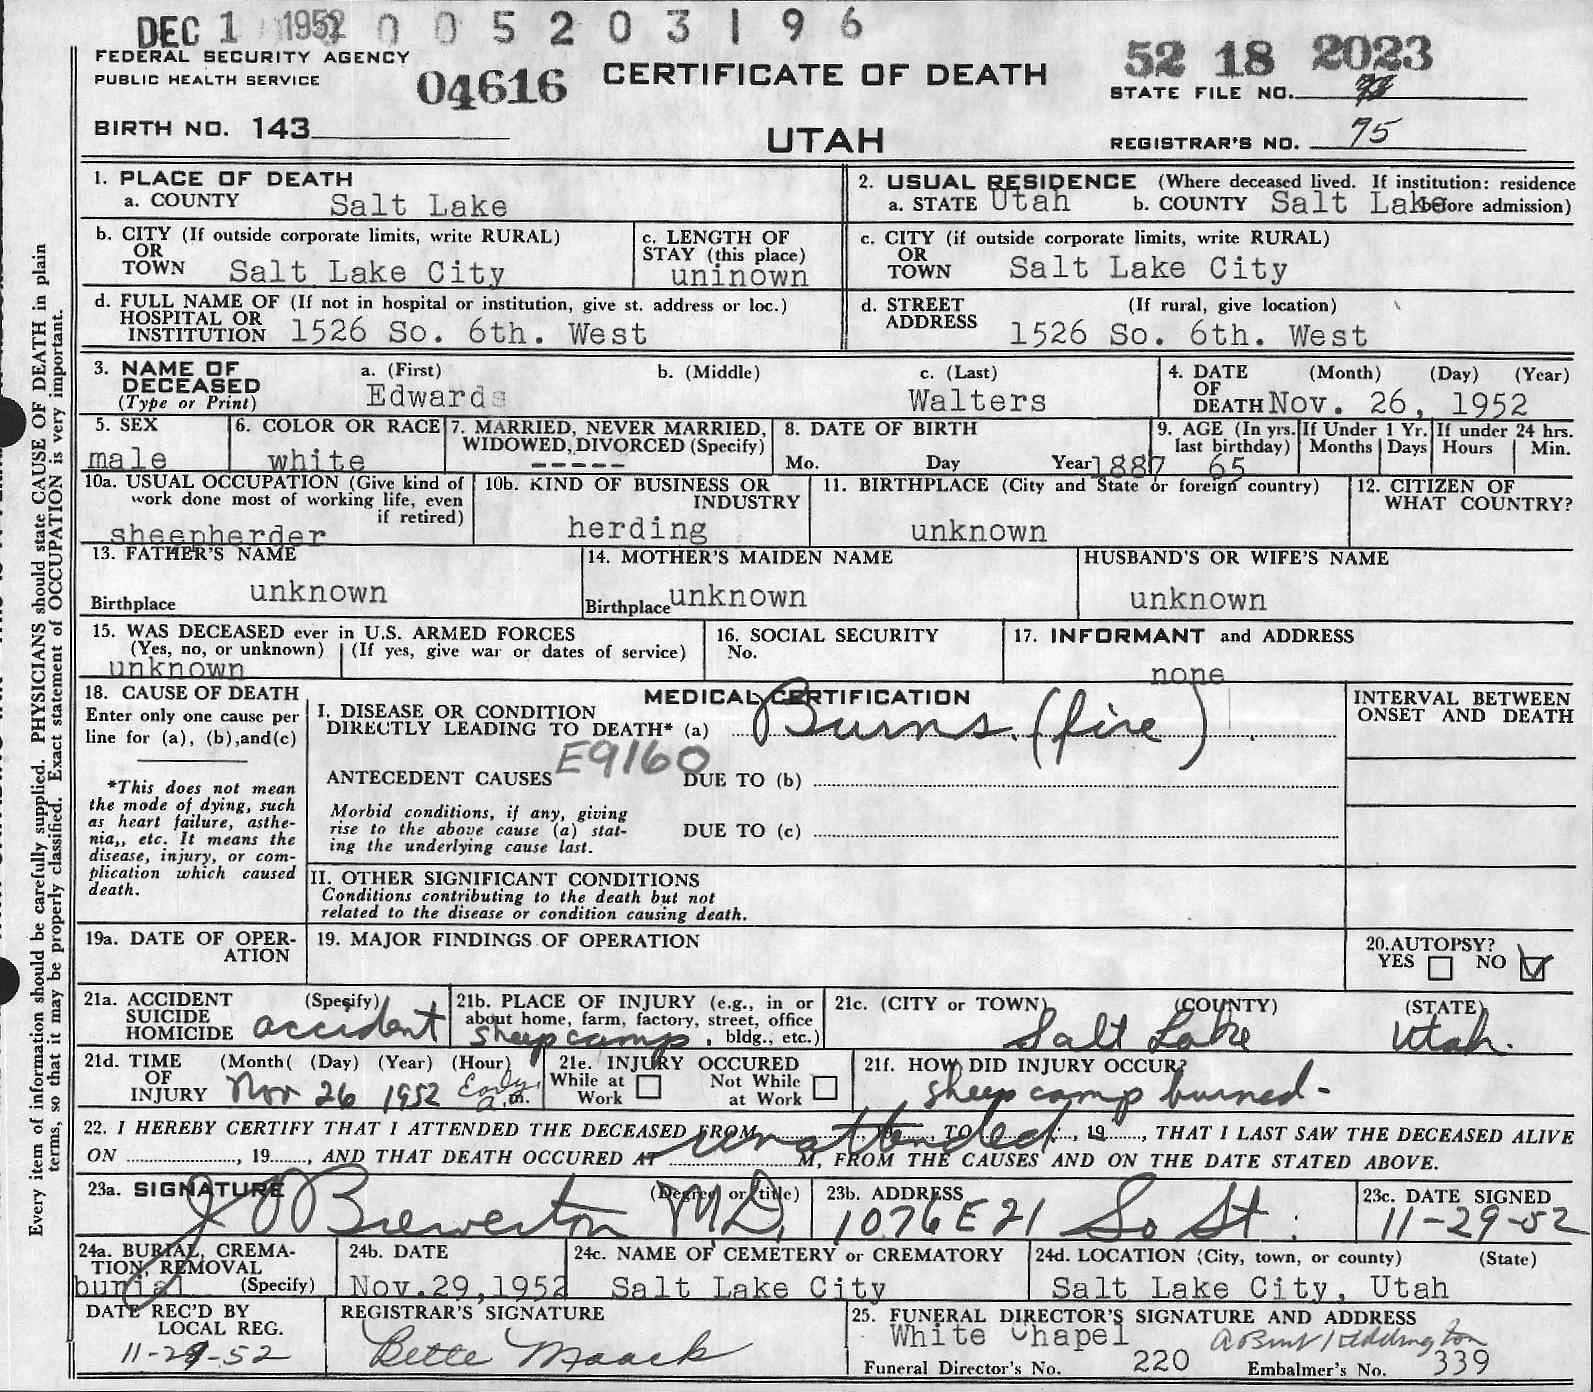 DEC 1 1952 0 0 5 2 0 3 1 9 6
FEDERAL SECURITY AGENCY
PUBLIC HEALTH SERVICE
04616
CERTIFICATE OF DEATH
52 18 2023
STATE FILE NO.
BIRTH NO. 143
UTAH
REGISTRAR'S NO. 75
Every item of information should be carefully supplied. PHYSICIANS should state CAUSE OF DEATH in plain
terms, so that it may be properly classified. Exact statement of OCCUPATION is very important.
1. PLACE OF DEATH
a. COUNTY Salt Lake
2. USUAL RESIDENCE (Where deceased lived. If institution: residence
a. STATE Utah b. COUNTY Salt Lake before admission)
b. CITY (If outside corporate limits, write RURAL)
OR
TOWN Salt Lake City
c. LENGTH OF
STAY (this place)
uninown
c. CITY (if outside corporate limits, write RURAL)
OR
TOWN Salt Lake City
d. FULL NAME OF (If not in hospital or institution, give st. address or loc.)
HOSPITAL OR
INSTITUTION 1526 So. 6th. West
d. STREET (If rural, give location)
ADDRESS 1526 So. 6th. West
3. NAME OF
DECEASED
(Type or Print)
a. (First) b. (Middle) c. (Last)
Edwards Walters
4. DATE (Month) (Day) (Year)
OF
DEATH Nov. 26, 1952
5. SEX
male
6. COLOR OR RACE
white
7. MARRIED, NEVER MARRIED,
WIDOWED, DIVORCED (Specify)
-----
8. DATE OF BIRTH
Mo. Day Year 1887
9. AGE (In yrs.
last birthday)
65
If Under 1 Yr.
Months Days
If under 24 hrs.
Hours Min.
10a. USUAL OCCUPATION (Give kind of
work done most of working life, even
if retired)
sheepherder
10b. KIND OF BUSINESS OR
INDUSTRY
herding
11. BIRTHPLACE (City and State or foreign country)
unknown
12. CITIZEN OF
WHAT COUNTRY?
13. FATHER'S NAME
unknown
Birthplace
14. MOTHER'S MAIDEN NAME
Birthplace unknown
HUSBAND'S OR WIFE'S NAME
unknown
15. WAS DECEASED ever in U.S. ARMED FORCES
(Yes, no, or unknown) (If yes, give war or dates of service)
unknown
16. SOCIAL SECURITY
No.
17. INFORMANT and ADDRESS
none
18. CAUSE OF DEATH
Enter only one cause per
line for (a), (b),and(c)
*This does not mean
the mode of dying, such
as heart failure, asthe-
nia,, etc. It means the
disease, injury, or com-
plication which caused
death.
MEDICAL CERTIFICATION
I. DISEASE OR CONDITION
DIRECTLY LEADING TO DEATH* (a) Burns. (fire)
E9160
ANTECEDENT CAUSES DUE TO (b)
Morbid conditions, if any, giving
rise to the above cause (a) stat-
ing the underlying cause last.
DUE TO (c)
II. OTHER SIGNIFICANT CONDITIONS
Conditions contributing to the death but not
related to the disease or condition causing death.
INTERVAL BETWEEN
ONSET AND DEATH
19a. DATE OF OPER-
ATION
19. MAJOR FINDINGS OF OPERATION
20.AUTOPSY?
YES NO
21a. ACCIDENT (Specify)
SUICIDE
HOMICIDE accident
21b. PLACE OF INJURY (e.g., in or
about home, farm, factory, street, office
bldg., etc.)
sheep camp
21c. (CITY or TOWN) (COUNTY) (STATE)
Salt Lake Utah.
21d. TIME (Month( (Day) (Year) (Hour)
OF
INJURY Nov 26 1952 Early a.m.
21e. INJURY OCCURED
While at
Work
Not While
at Work
21f. HOW DID INJURY OCCUR?
sheep camp burned-
22. I HEREBY CERTIFY THAT I ATTENDED THE DECEASED FROM unattended, 19, TO, 19, THAT I LAST SAW THE DECEASED ALIVE
ON, 19, AND THAT DEATH OCCURED AT M, FROM THE CAUSES AND ON THE DATE STATED ABOVE.
23a. SIGNATURE (Degree or title)
Brewerton M.D.
23b. ADDRESS
1076 E 21 So St.
23c. DATE SIGNED
11-29-52
24a. BURIAL, CREMA-
TION, REMOVAL
burial (Specify)
24b. DATE
Nov.29,1952
24c. NAME OF CEMETERY or CREMATORY
Salt Lake City
24d. LOCATION (City, town, or county) (State)
Salt Lake City, Utah
DATE REC'D BY
LOCAL REG.
11-29-52
REGISTRAR'S SIGNATURE
Bette Maack
25. FUNERAL DIRECTOR'S SIGNATURE AND ADDRESS
White Chapel
Funeral Director's No. 220 Embalmer's No. 339